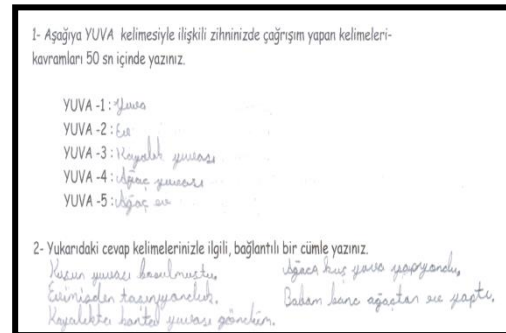 1- Aşağıya YUVA kelimesiyle ilişkili zihninizde çağrışım yapan kelimeleri-
kavramları 50 sn içinde yazınız.
YUVA -1 : Yuva
YUVA -2 : Ev
YUVA -3 : Kayalık yuvası
YUVA -4 : Ağaç yuvası
YUVA -5 : Ağaç ev
2- Yukarıdaki cevap kelimelerinizle ilgili, bağlantılı bir cümle yazınız.
Kuşun yuvası bozulmuştu.
Evimizden taşınıyorduk.
Kayalıkta kartal yuvası gördüm.
Ağaca kuş yuva yapıyordu.
Babam bana ağaçtan ev yaptı.